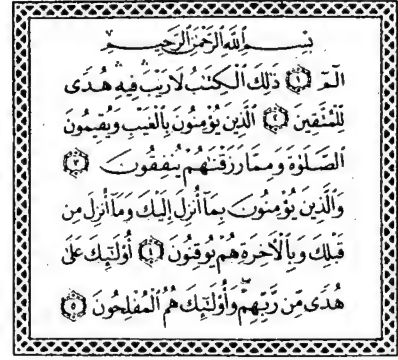 بِسْمِ ٱللَّهِ ٱلرَّحْمَٰنِ ٱلرَّحِيمِ
الٓمٓ ١ ذَٰلِكَ ٱلْكِتَٰبُ لَا رَيْبَ ۛ فِيهِ ۛ هُدًى
لِّلْمُتَّقِينَ ٢ ٱلَّذِينَ يُؤْمِنُونَ بِٱلْغَيْبِ وَيُقِيمُونَ
ٱلصَّلَوٰةَ وَمِمَّا رَزَقْنَٰهُمْ يُنفِقُونَ ٣
وَٱلَّذِينَ يُؤْمِنُونَ بِمَآ أُنزِلَ إِلَيْكَ وَمَآ أُنزِلَ مِن
قَبْلِكَ وَبِٱلْأَخِرَةِ هُمْ يُوقِنُونَ ٤ أُوْلَٰٓئِكَ عَلَىٰ
هُدًى مِّن رَّبِّهِمْ ۖ وَأُوْلَٰٓئِكَ هُمُ ٱلْمُفْلِحُونَ ٥